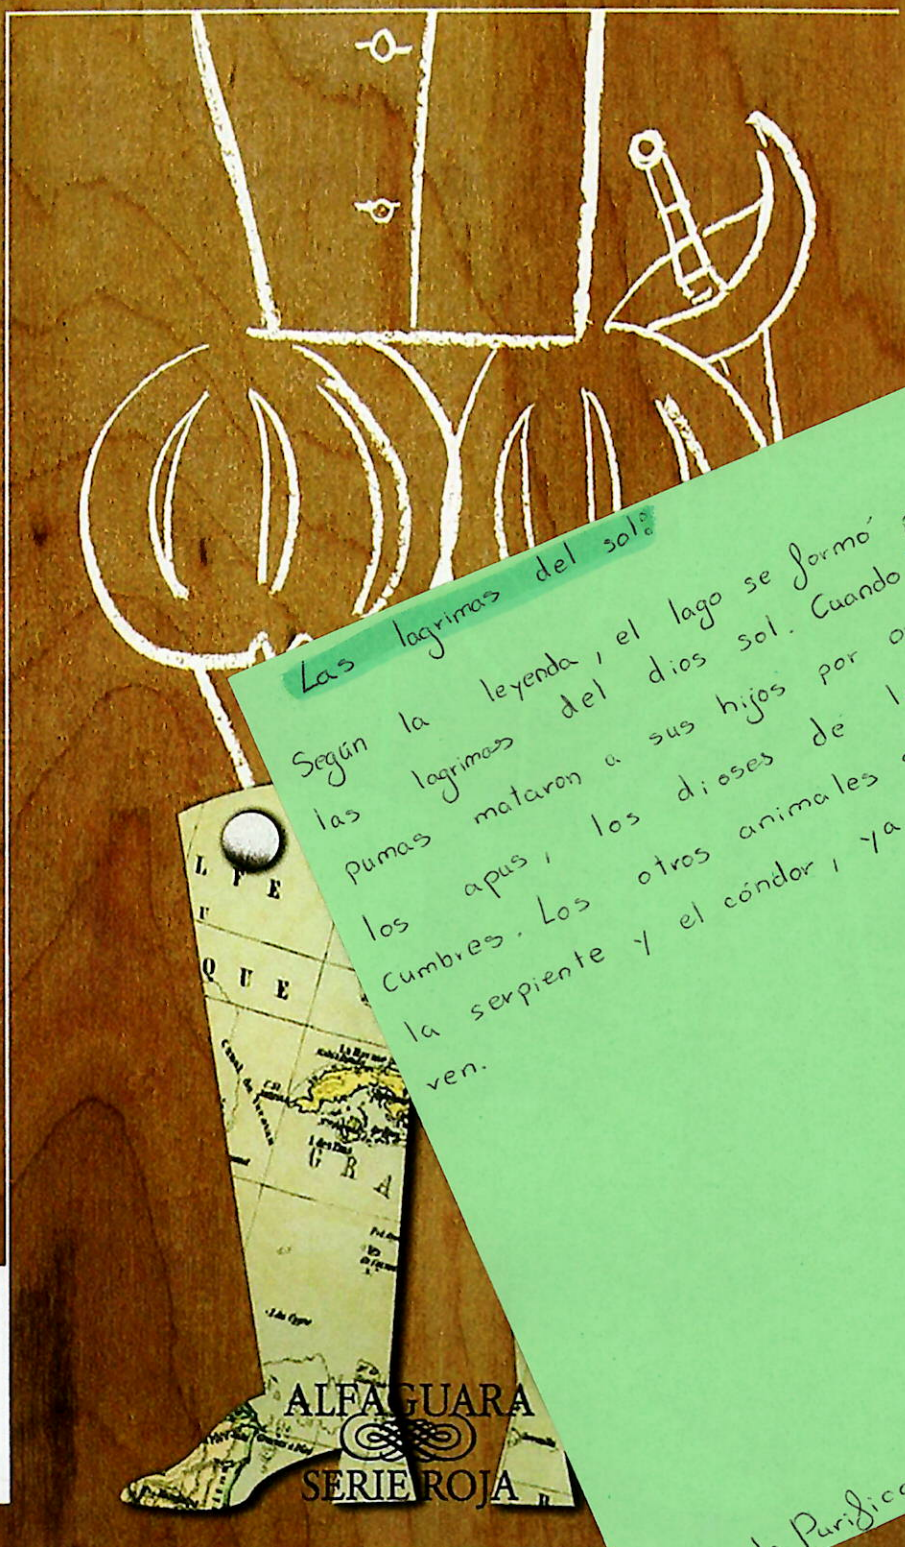 Las lagrimas del sol:
Según la leyenda, el lago se formó
las lagrimas del dios sol. Cuando
pumas mataron a sus hijos por
los apus, los dioses de
Cumbres. Los otros animales
la serpiente y el cóndor, ya
ven.
L F E
U
Q U E
Canal de Yucatan
G R A
I. du Cygne
ALFAGUARA
SERIE ROJA